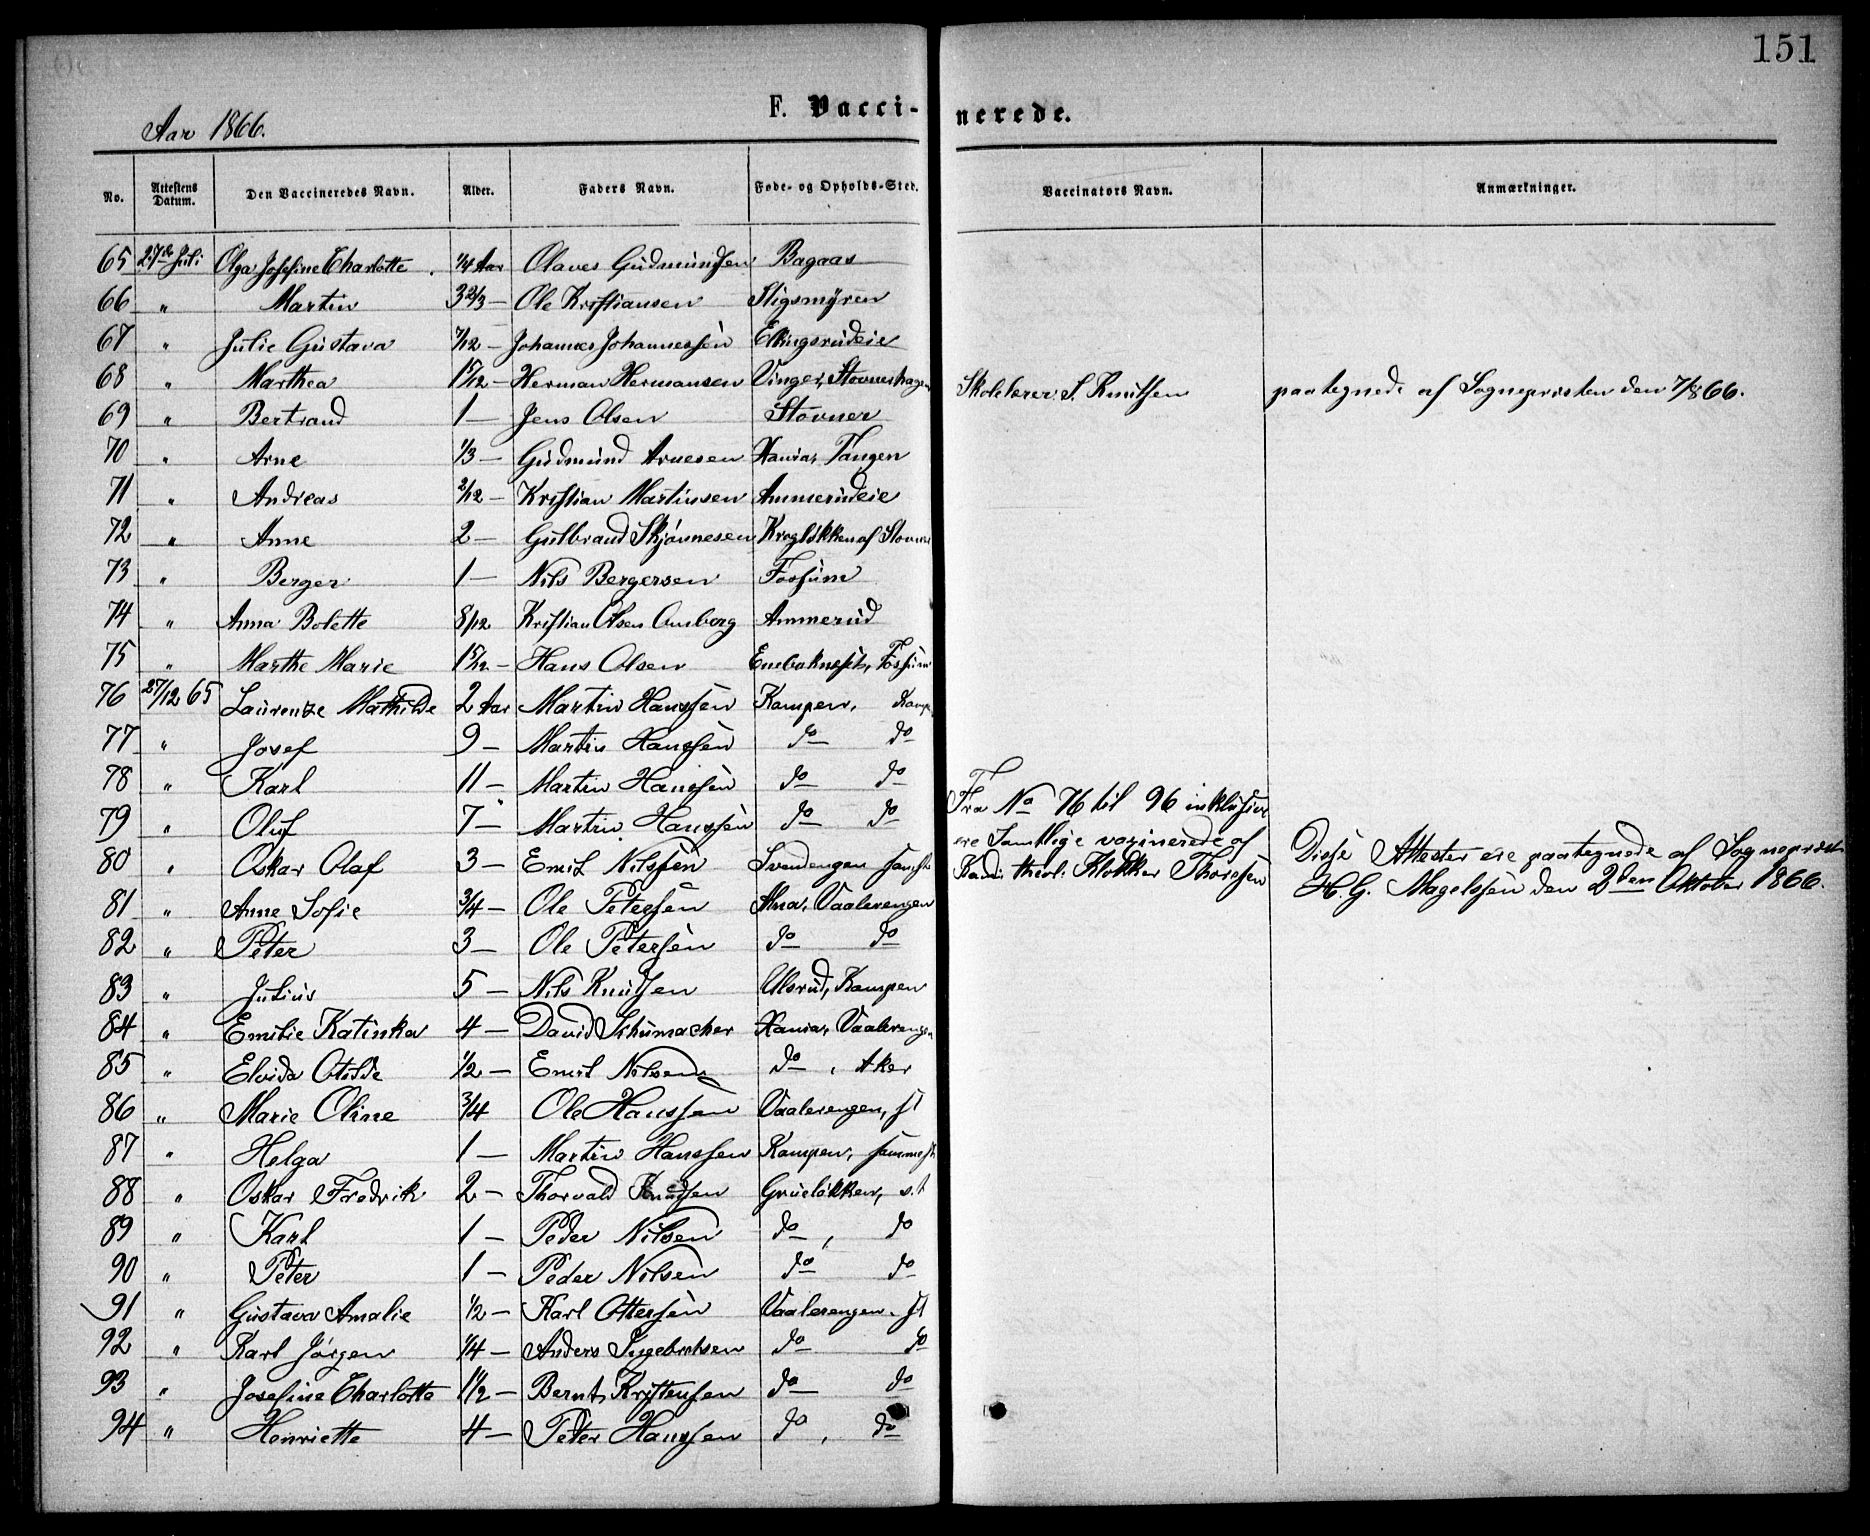 151
Aar 1866.
F. Vacci-nerede.
No. Attestens Datum. Den Vaccineredes Navn. Alder. Faders Navn. Føde- og Opholds-Sted. Vaccinators Navn. Anmærkninger.
65 27de Juli Olga Josefine Charlotte 1/4 Aar Olaves Gudmundsen Bagaas
66 " Martin 3 2/3 — Ole Kristiansen Stigsmyren
67 " Julie Gustava 7/12 — Johannes Johannessen Ellingsrudeie
68 " Marthea 1 5/12 — Herman Hermansen Vinger, Stovnerhagen Skolelærer S. Knutsen paategnede af Sognepresten den 7/8 66.
69 " Bertrand 1 — Jens Olsen Stovner
70 " Arne 1/3 — Gudmund Arnesen Xania, Tangen
71 " Andreas 2/12 — Kristian Martinsen Ammerudeie
72 " Anne 2 — Gulbrand Skjønnesen Krogløkken af Stovner
73 " Berger 1 — Nils Bergersen Fossum
74 " Anna Bolette 8/12 Kristian Olsen Ammerud
75 " Marthe Marie 1 5/12 — Hans Olsen Enebaknesset, Fossum
76 27/12 65 Laurenze Mathilde 2 Aar Martin Hanssen Kampen, Kamp.
77 " Josef 9 — Martin Hanssen do do
78 " Karl 11 — Martin Hanssen do do
Fra No 76 til 96 inklusive
79 " Oluf 7 — Martin Hanssen do do
ere Samtlige vaxinerede af
80 " Oskar Olaf 3 — Emil Nilssen Svendengen samst
Kand. theol. Klokker Thoresen
Disse Attester ere paategnede af Sogneprest
H. G. Magelssen den 2den Oktober 1866.
81 " Anne Sofie 3/4 — Ole Petersen Alna, Vaalerengen
82 " Peter 3 — Ole Petersen do do
83 " Julius 5 — Nils Knutsen Ulsrud, Kampen
84 " Emilie Katinka 4 — David Schumacher Xania, Vaalerengen
85 " Elvida Otilde 1/2 — Emil Nilsen do, Aker
86 " Marie Oline 3/4 Ole Hanssen Vaalerengen, st
87 " Helga 1 — Martin Hanssen Kampen, sammest
88 " Oskar Fredrik 2 — Thorvald Knutsen Grueløkken, s.t
89 " Karl 1 — Peder Nilsen do, do
90 " Peter 1 — Peder Nilsen do do
91 " Gustava Amalie 1/2 — Karl Ottersen Vaalerengen, st
92 " Karl Jørgen 1/4 — Anders Ingebretsen do do
93 " Josefine Charlotte 1 1/2 — Bernt Kristensen do do
94 " Henriette 4 — Peter Hanssen do, do